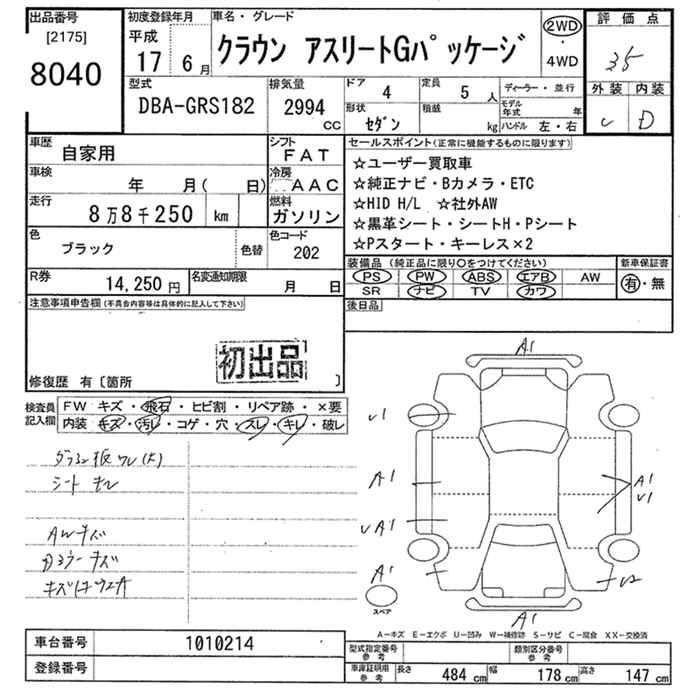 出品番号
[2175]
8040
初度登録年月
平成
17 6 月
車名・グレード
クラウン アスリートGパッケージ
2WD
・
4WD
評価点
35
外装 内装
D
型式
DBA-GRS182
排気量
2994
CC
ドア 4
定員 5 人
ディーラー・並行
形状 セダン
積載 kg
モデル年式 年
ハンドル 左・右
車歴 自家用
シフト
FAT
車検 年 月( 日)
冷房
AAC
走行 8万8千250 km
燃料
ガソリン
色 ブラック 色替
色コード
202
R券 14,250円
名変通知期限 月 日
セールスポイント(正常に機能するものに限ります)
☆ユーザー買取車
☆純正ナビ・Bカメラ・ETC
☆HID H/L ☆社外AW
☆黒革シート・シートH・Pシート
☆Pスタート・キーレス×2
装備品(純正品に限り○をつけてください)
PS PW ABS エアB AW
SR ナビ TV カワ
新車保証書
有・無
後日品
注意事項申告欄(不具合内容等は具体的に記入して下さい)
初出品
修復歴 有〔箇所 〕
検査員記入欄
FW キズ・飛石・ヒビ割・リペア跡・×要
内装 キズ・汚レ・コゲ・穴・スレ・キレ・破レ
シート キレ
AWキズ
A1
A1
A1
A1
A1
スペア
A-キズ E-エクボ U-凹み W-補修跡 S-サビ C-腐食 XX-交換済
車台番号 1010214
登録番号
型式指定番号 参考
類別区分番号 参考
車庫証明用 参考
長さ 484 cm
幅 178 cm
高さ 147 cm